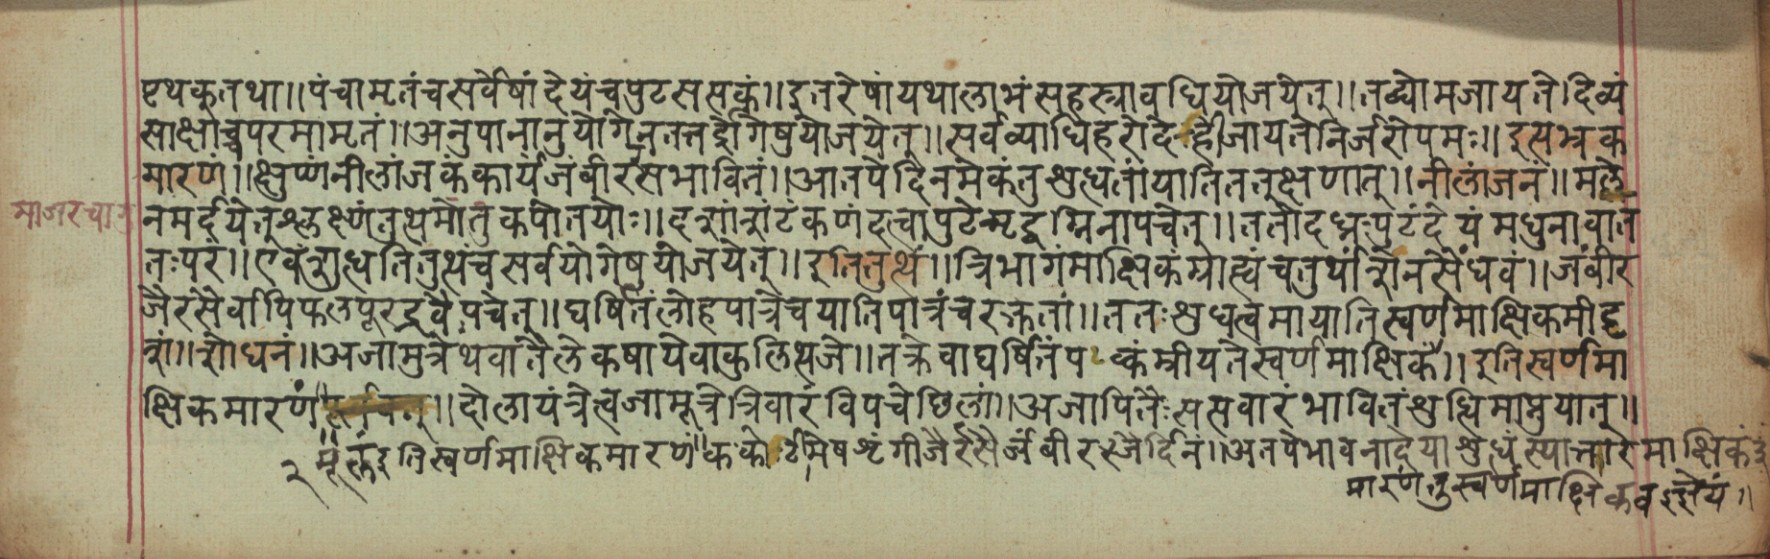 पृथक्तथा।। पंचामृतंच सर्वेषां देयंच पुटससकं।। इतरेषां यथालाभं सहस्रावधि योजयेत्।। तव्योमजायते दिव्यं
साक्षाच्च परमामृतं।। अनुपानानुयोगेन तत्तद्रोगेषु योजयेत्।। सर्वव्याधिहरोदेहो जायते निर्जरोपमः।। इसभ्रक
मारणं।। क्षुण्णं नीलांजकं कार्यं जंबीररसभावितं।। आतपे दिनमेकंतु शुध्यतां याति तत्क्षणात्।। नीलांजनं।। मले
मार्जार
न मर्दयेत् श्लक्ष्णं तुत्थमोतुकपोतयोः।। दशांशं टंकणं दत्वा पुटेन्मृद्वग्निना पचेत्।। ततो दध्नः पुटं देयं मधुना वात
तः परं।। एवं शुध्यति तुत्थंच सर्वयोगेषु योजयेत्।। इति तुत्थं।। त्रिभागं माक्षिकं ग्राह्यं चतुर्थांशेन सैंधवं।। जंबीर
जैरसैर्वापि फलपूरद्रवैः पचेत्।। घर्षितं लोहपात्रेच याति पात्रंच रक्ततां।। ततः शुध्यत्वमायाति स्वर्णमाक्षिकमीदृ
शं।। शोधनं।। अजामुत्रेथवा तैले कषायेवा कुलित्थजे।। तक्रेवा घर्षितं पक्कं म्रीयते स्वर्णमाक्षिकं।। इति स्वर्णमा
क्षिकमारणं।। दोलायंत्रेत्वजामूत्रे त्रिवारं विपचेछिलां।। अजापितैः ससवारं भावितं शुधिमाप्नुयात्।।
२ इति स्वर्णमाक्षिकमारणं।। कर्कोटीमेषशृंगीजैरसैर्जंबीरजैर्दिनं।। अतपे भावनादेया शुधं स्यात्तारमाक्षिकं
मारणंतु स्वर्णमाक्षिकवज्ञेयं।।